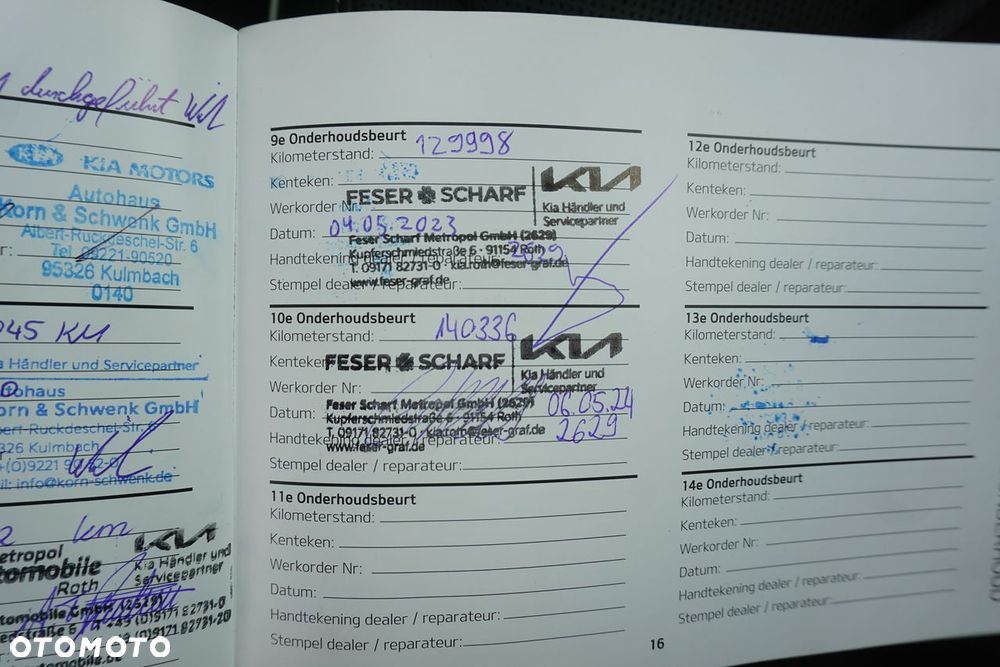 durchgeführt
KIA KIA MOTORS
Autohaus
Korn & Schwenk GmbH
Albert-Ruckdeschel-Str. 6
Tel. 09221-90520
95326 Kulmbach
0140
045 KM
a Händler und Servicepartner
ohaus
orn & Schwenk GmbH
bert-Ruckdeschel-Str. 6
326 Kulmbach
il: info@korn-schwenk.de
km
etropol
tomobile
Roth
KIA
Kia Händler und
Servicepartner
tomobile GmbH (2629)
edstraße 6
9e Onderhoudsbeurt
Kilometerstand: 129998
Kenteken:
FESER SCHARF
KIA
Kia Händler und
Servicepartner
Werkorder Nr:
Datum: 04.05.2023
Feser Scharf Metropol GmbH (2629)
Kupferschmiedstraße 6 · 91154 Roth
Handtekening dealer / reparateur: 2629
T: 09171 82731-0 · kia.roth@feser-graf.de
www.feser-graf.de
Stempel dealer / reparateur:
10e Onderhoudsbeurt
Kilometerstand: 140336
Kenteken:
FESER SCHARF
KIA
Kia Händler und
Servicepartner
Werkorder Nr:
Datum: 06.05.24
Feser Scharf Metropol GmbH (2629)
Kupferschmiedstraße 6 · 91154 Roth
T. 09171 82731-0 · kia.roth@feser-graf.de
Handtekening dealer / reparateur: 2629
www.feser-graf.de
Stempel dealer / reparateur:
11e Onderhoudsbeurt
Kilometerstand:
Kenteken:
Werkorder Nr:
Datum:
Handtekening dealer / reparateur:
Stempel dealer / reparateur:
12e Onderhoudsbeurt
Kilometerstand:
Kenteken:
Werkorder Nr:
Datum:
Handtekening dealer / reparateur:
Stempel dealer / reparateur:
13e Onderhoudsbeurt
Kilometerstand:
Kenteken:
Werkorder Nr:
Datum:
Handtekening dealer / reparateur:
Stempel dealer / reparateur:
14e Onderhoudsbeurt
Kilometerstand:
Kenteken:
Werkorder Nr:
Datum:
Handtekening dealer / reparateur:
Stempel dealer / reparateur:
16
OTOMOTO